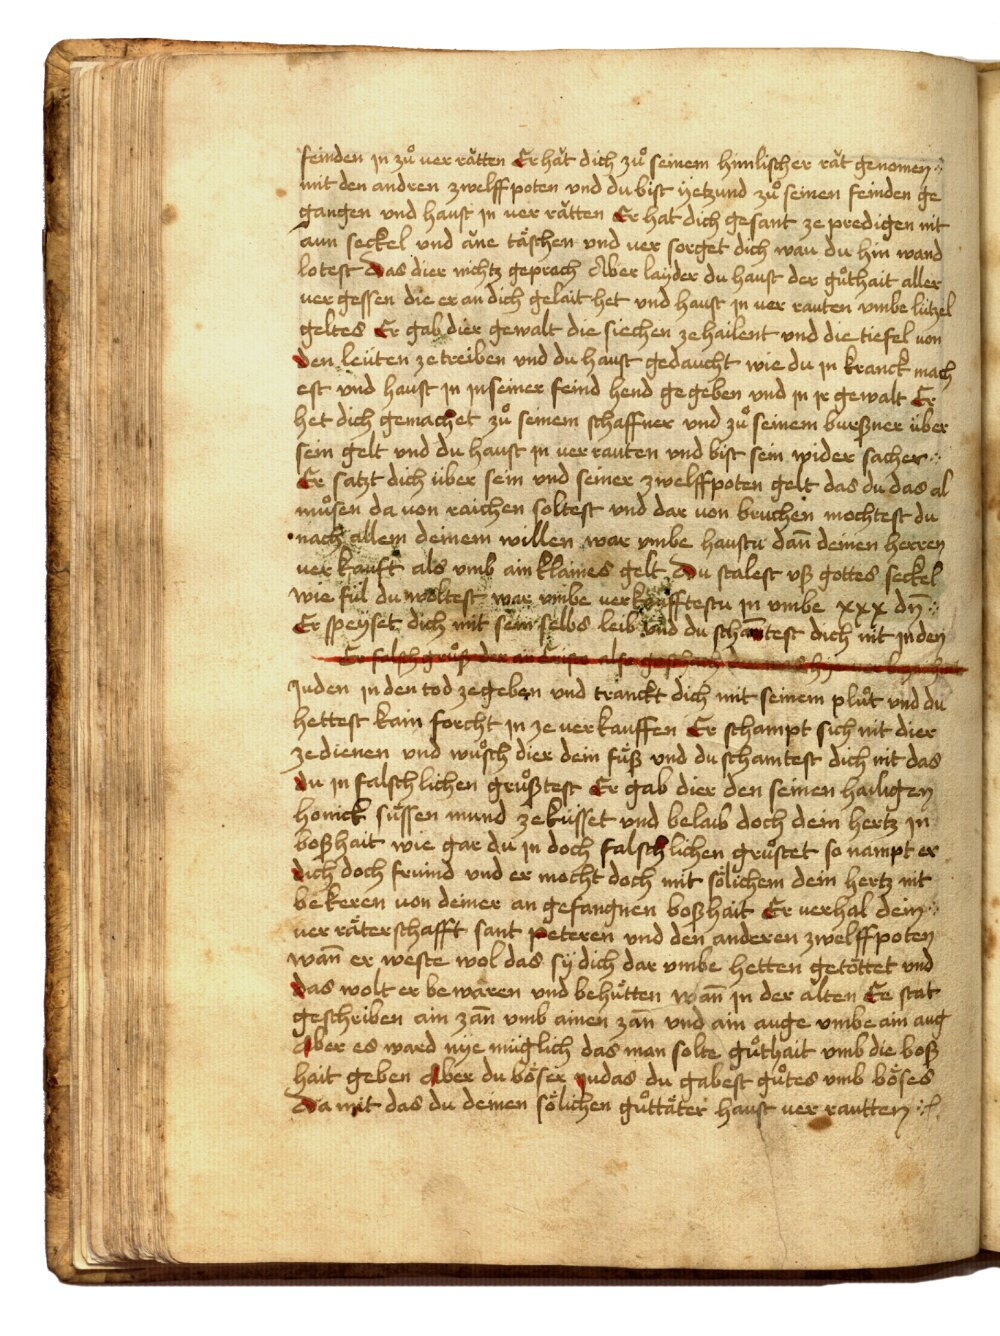 feinden in zů ver rätten Er hät dich zů seinem himlischer rät genomen
mit den andren zwelffpoten vnd du bist yetzund zů seinen feinden ge
gangen vnd haust in ver rätten Er hat dich gesant ze predigen nit
aun seckel vnd äne täschen vnd ver sorget dich wau du hin wand
lotest Das dier nichtz geprach Aber layder du haust der gůthait aller
ver gessen die er an dich gelait het vnd haust in ver rauten vmbe lützel
geltes Er gab dier gewalt die siechen ze hailent vnd die tiefel von
den leüten ze treiben vnd du haust gedaucht wie du in kranck mach
est vnd haust in in seiner feind hend ge geben vnd in ir gewalt Er
het dich gemachet zů seinem schaffner vnd zů seinem burßner über
sein gelt vnd du haust in ver rauten vnd bist sein wider sacher
Er satzt dich über sein vnd seiner zwelffpoten gelt das du das al
můsen da von raichen soltest vnd dar von bruchen mochtest du
nach allem deinem willen war vmbe haustu dañ deinen herren
ver kauft als vmb ain klaines gelt Du stalest vß gottes seckel
wie fil du woltest war vmbe verkoufftestu in vmbe xxx dñ
Er speyset dich mit sein selbs leib vnd du schamtest dich nit in den
Juden in den tod ze geben vnd tranckt dich mit seinem plůt vnd du
hettest kain forcht in ze verkauffen Er schampt sich nit dier
ze dienen vnd wůsch dier dein füß vnd du schamtest dich nit das
du in falschlichen grůßtest Er gab dier den seinen hailigen
honick süssen mund ze küsset vnd belaib doch dein hertz in
boßhait wie gar du in doch falschlichen grůstet so nampt er
dich doch fruind vnd er mocht doch mit sölichem dein hertz nit
be keren von deiner an gefangnen boßhait Er verhal dein
ver räterschafft sant peteren vnd den anderen zwelffpoten
wañ er weste wol das sÿ dich dar vmbe hetten getöttet vnd
das wolt er be wären vnd behütten wañ in der alten Ee stat
geschriben ain zañ vmb ainen zañ vnd ain auge vmbe ain aug
Aber es ward nye müglich das man solte gůthait vmb die boß
hait geben Aber du böser judas du gabest gůtes vmb böses
Da mit das du deinen sölichen gůttäter haust ver rautten